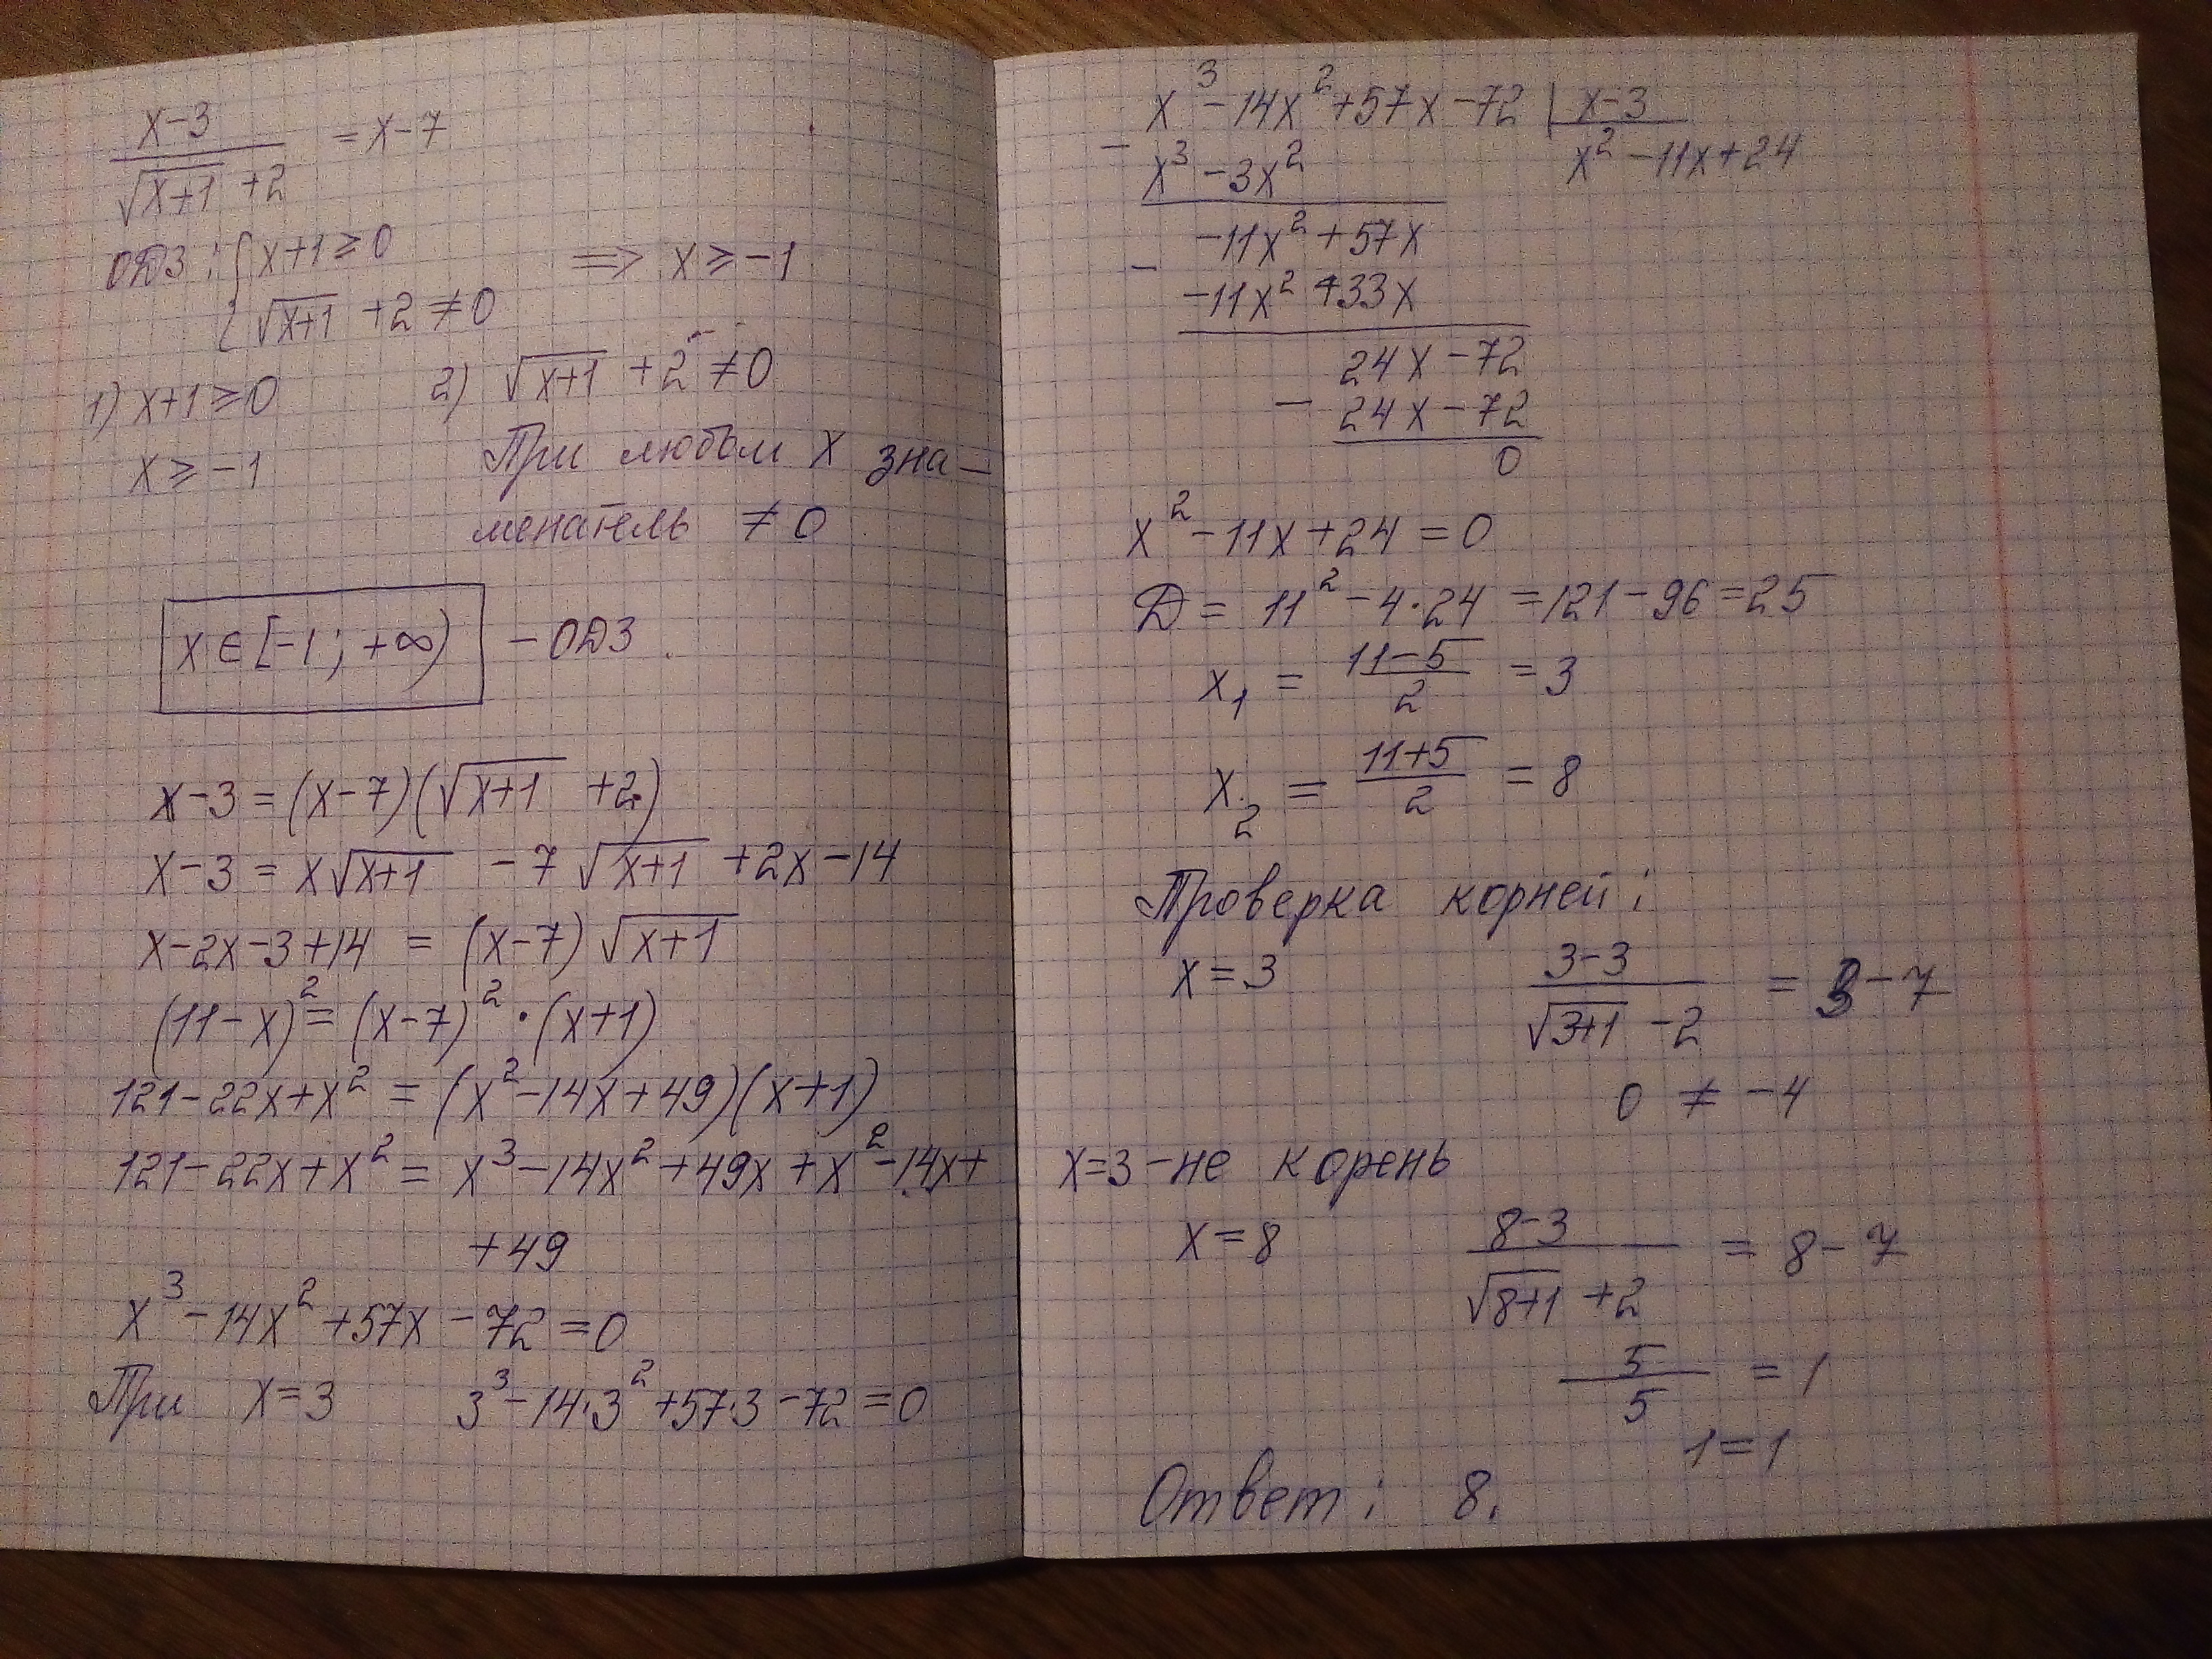 x-3
─── = x-7
√(x+1) +2
ОДЗ: { x+1 ≥ 0 ⟹ x ≥ -1
{ √(x+1) +2 ≠ 0
1) x+1 ≥ 0 2) √(x+1) +2 ≠ 0
x ≥ -1 При любом x зна-
менатель ≠ 0.
x ∈ [-1; +∞) - ОДЗ.
x-3 = (x-7)(√(x+1) +2)
x-3 = x√(x+1) -7√(x+1) +2x-14
x-2x-3+14 = (x-7)√(x+1)
(11-x)² = (x-7)² · (x+1)
121-22x+x² = (x²-14x+49)(x+1)
121-22x+x² = x³-14x²+49x+x²-14x+
+49
x³-14x²+57x-72=0
При x=3 3³-14·3²+57·3-72=0
x³-14x²+57x-72 | x-3
- x³-3x² x²-11x+24
-11x²+57x
- -11x²+33x
24x-72
- 24x-72
0
x²-11x+24=0
D = 11²-4·24 =121-96=25
x₁ = (11-5)/2 = 3
x₂ = (11+5)/2 = 8
Проверка корней:
x=3 (3-3)/(√(3+1) -2) = 3-7
0 ≠ -4
x=3 -не корень
x=8 (8-3)/(√(8+1) +2) = 8-7
5/5 = 1
1=1
Ответ: 8.